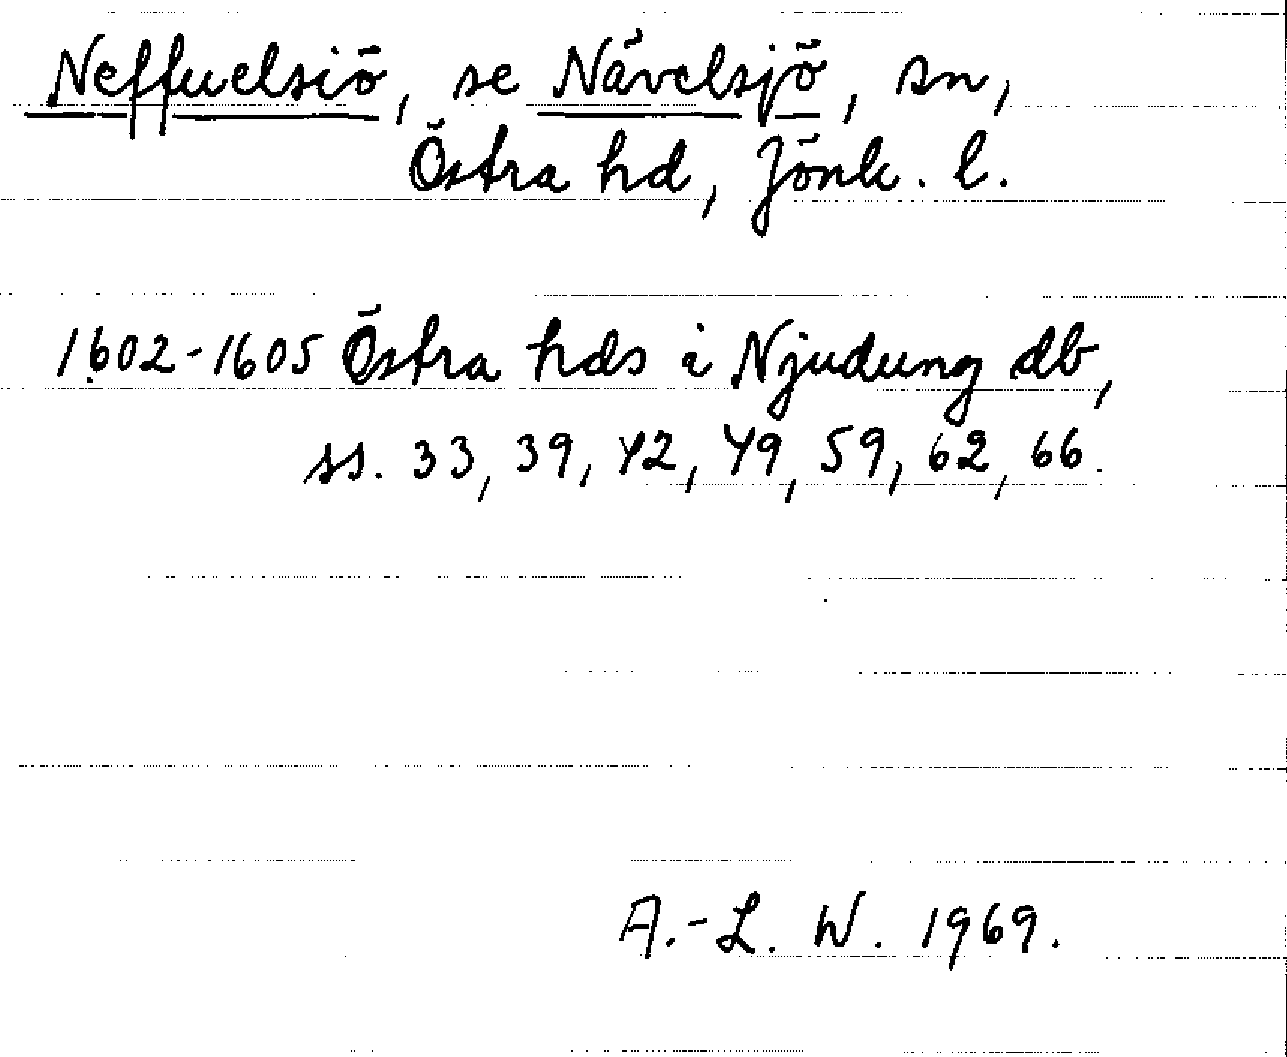 Neffuelsiö, se Nävelsjö, sn,
Östra hd, Jönk. l.
1602-1605 Östra hds i Njudung db,
ss. 33, 39, 42, 49, 59, 62, 66.
A.-L. W. 1969.